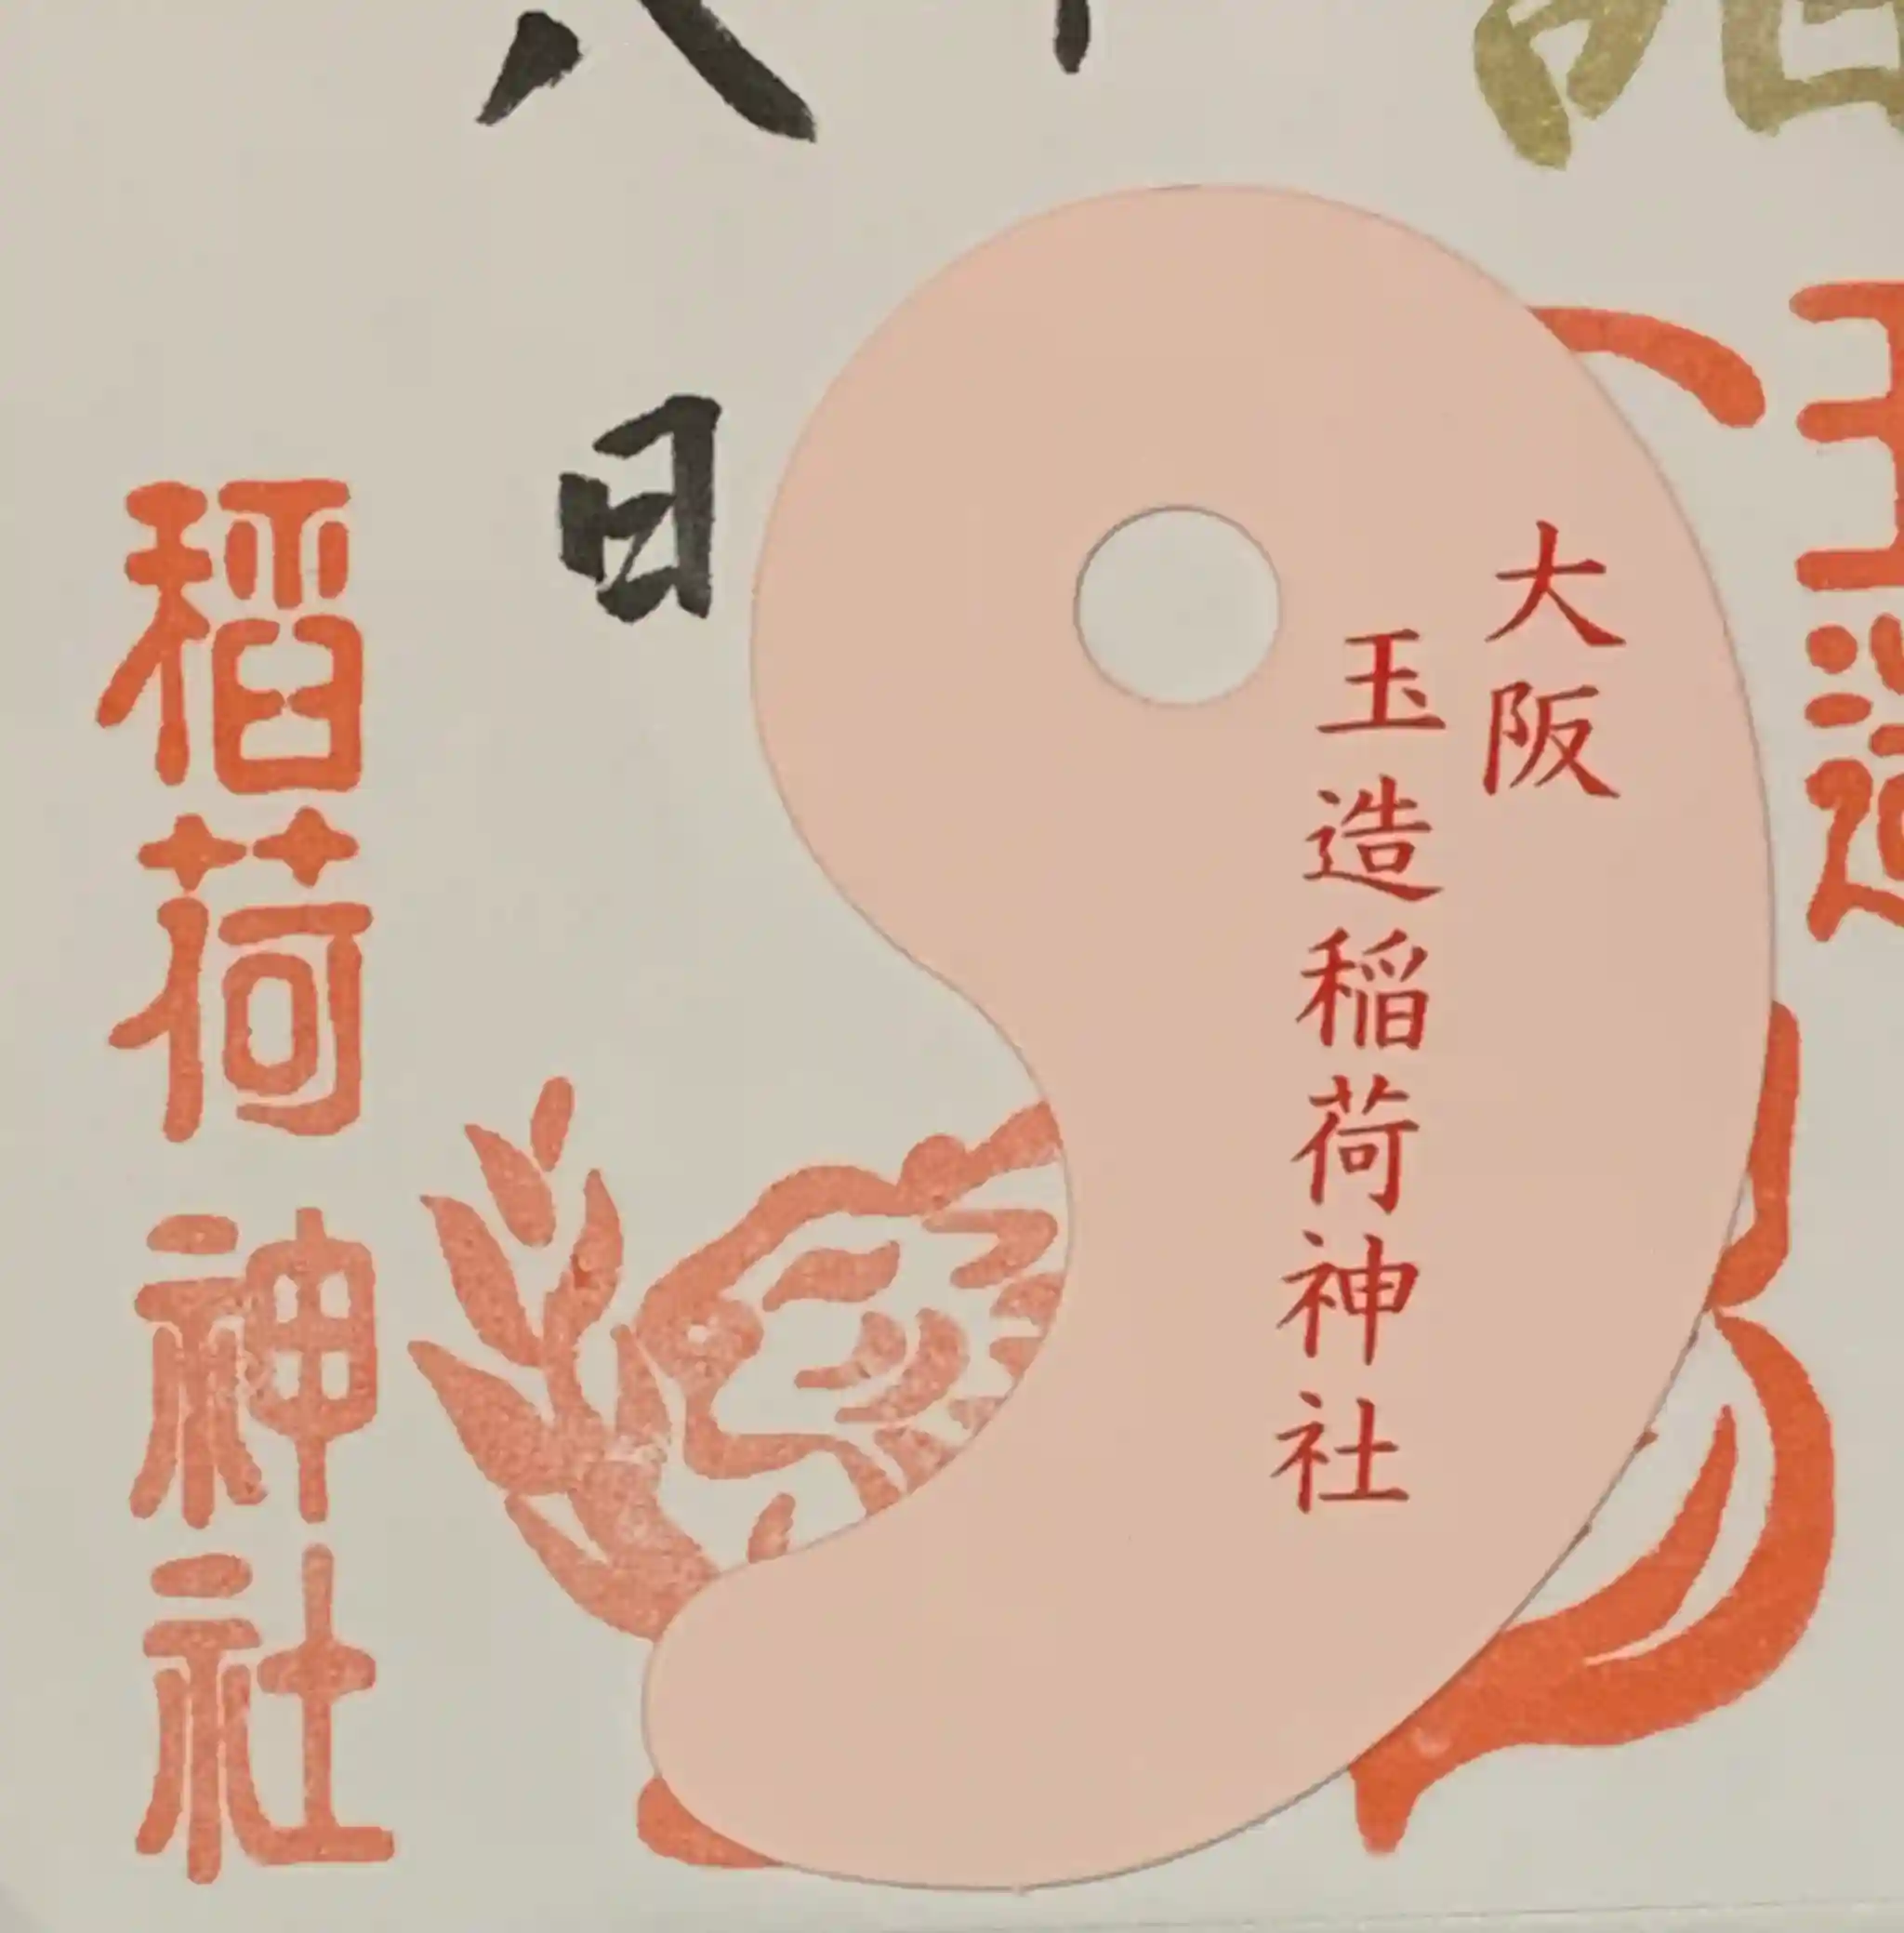 玉造
大阪
玉造稲荷神社
日
稲荷神社